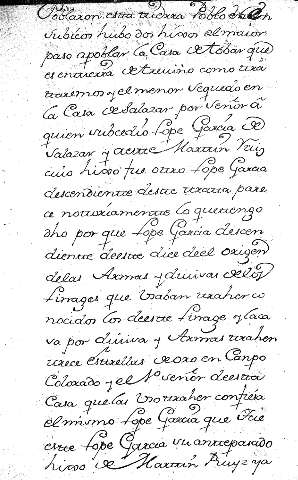 Poblaron esta tierra Pobló
subicos hubo dos hixos el maior
paso apoblar la Casa de Tobar que
es entierra de treuiño como
trataremos y el menor sequedó en
la Casa de Salazar por señor á
quien subcedió Lope Garçia de
Salazar y aeste Martin Ruiz
cuio hixo fue otro Lope Garcia
descendiente desta
ce notoriamente lo que tengo
dho por que Lope Garcia descen
diente deeste dice del origen
delas Armas y diuisas de los
linages que vsaban trahen co
nocidos los deeste linage y Casa
va por diuisa y Armas trahen
trece estrellas de oro en Canpo
Colorado y el Nº señor deesta
Casa que las truxeher confiesa
el mismo Lope Garçia que fue
este Lope Garcia su antepasado
hixo de Martin Ruyz ya